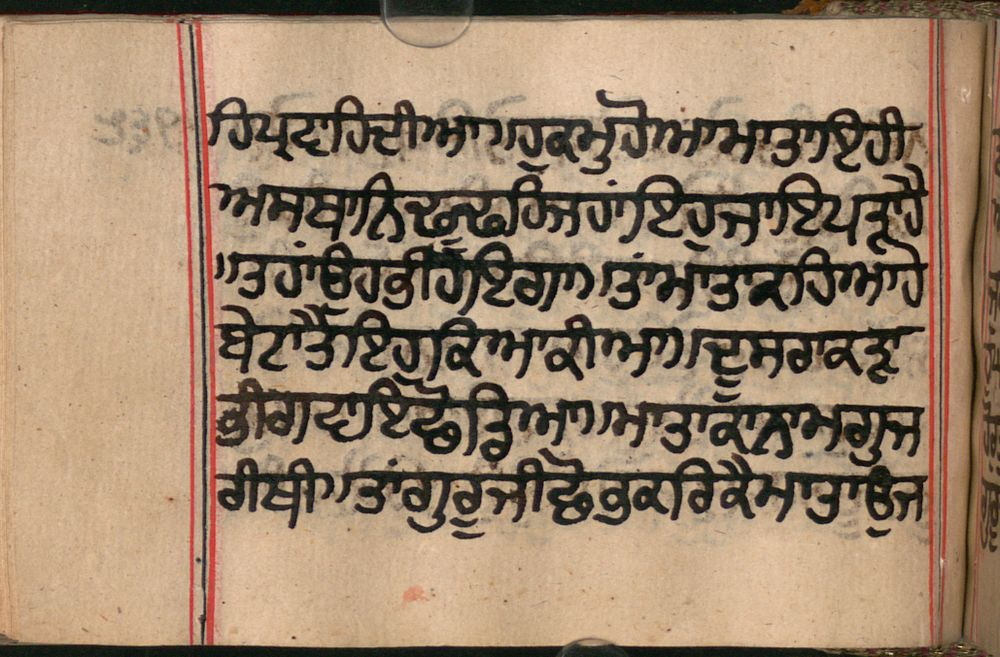 ਹਿਪ੍ਰਵਾਹਿਦੀਆ॥ਹੁਕਮੁਹੋਆਮਾਤਾਇਹੀ
ਅਸਥਾਨਿਢੂਢਹਿਜਹਾਂਇਹੁਜਾਇਪੜਾਹੈ
॥ਤਹਾਂਓਹਭੀਹੋਇਗਾ॥ਤਾਂਮਾਤਾਕਹਿਆਹੇ
ਬੇਟਾਤੈਇਹੁਕਿਆਕੀਆ॥ਦੂਸਰਾਕੜਾ
ਭੀਗਵਾਇਛੋੜਿਆ॥ਮਾਤਾਕਾਨਾਮਗੁਜ
ਰੀਥੀ॥ਤਾਂਗੁਰੂਜੀਛੋਭਕਰਿਕੈਮਾਤਾਗੁਜ